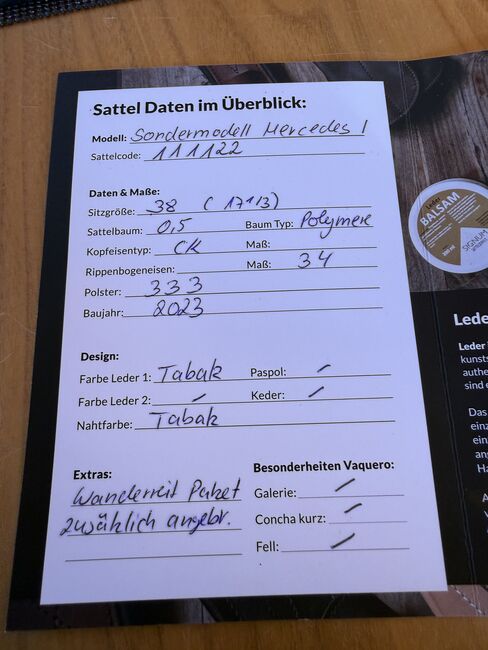 Sattel Daten im Überblick:
Modell: Sondermodell Mercedes I
Sattelcode: 111122
Daten & Maße:
Sitzgröße: 38 (17 1/3)
Sattelbaum: 0,5 Baum Typ: Polymere
Kopfeisentyp: CK Maß:
Rippenbogeneisen: Maß: 34
Polster: 333
Baujahr: 2023
Design:
Farbe Leder 1: Tabak Paspol: /
Farbe Leder 2: / Keder: /
Nahtfarbe: Tabak
Extras:
Wanderreit Paket
zuwählich angebr.
Besonderheiten Vaquero:
Galerie: /
Concha kurz: /
Fell: /
BALSAM
SIGNUM
Lede
Leder
kunsts
authe
sind e
Das
einz
ein
ans
Ha